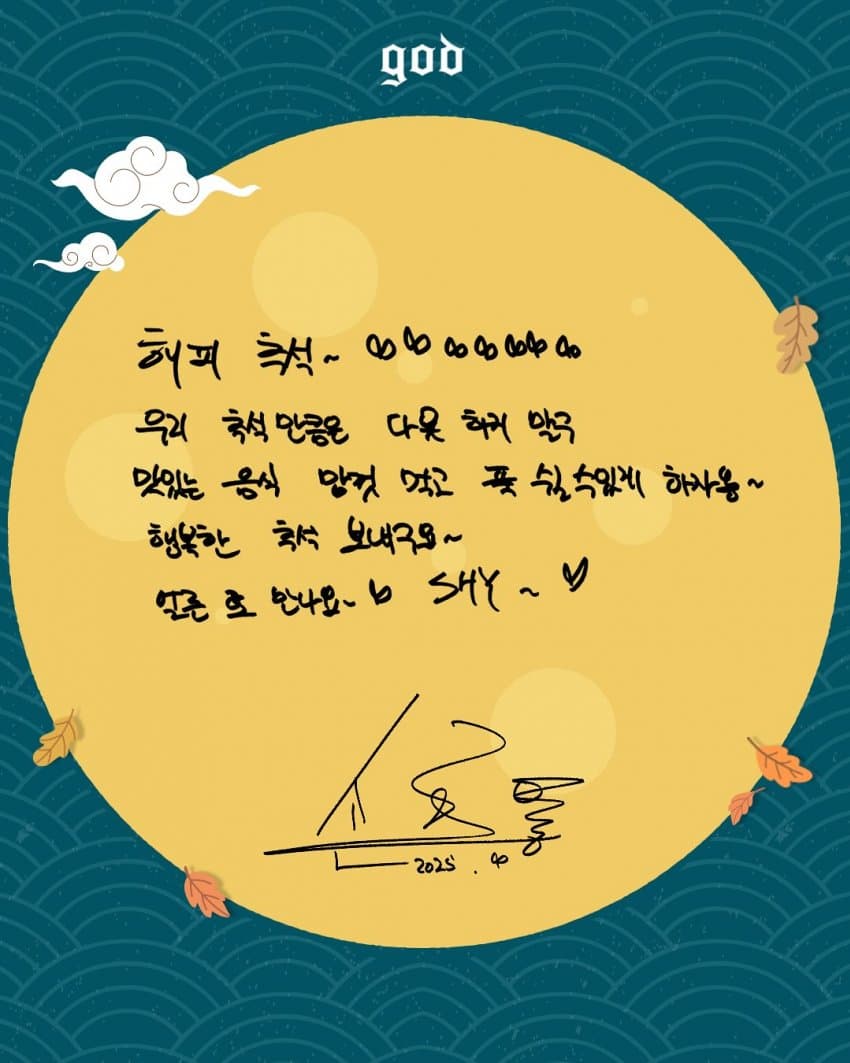 god
해피 추석~ ♡♡♡♡♡♡♡
우리 추석만큼은 다욧 하지 말구
맛있는 음식 맘껏 먹고 푹 쉴수있게 하자용~
행복한 추석 보내구요~
얼른 또 만나요~♡ SHY~♡
2025.